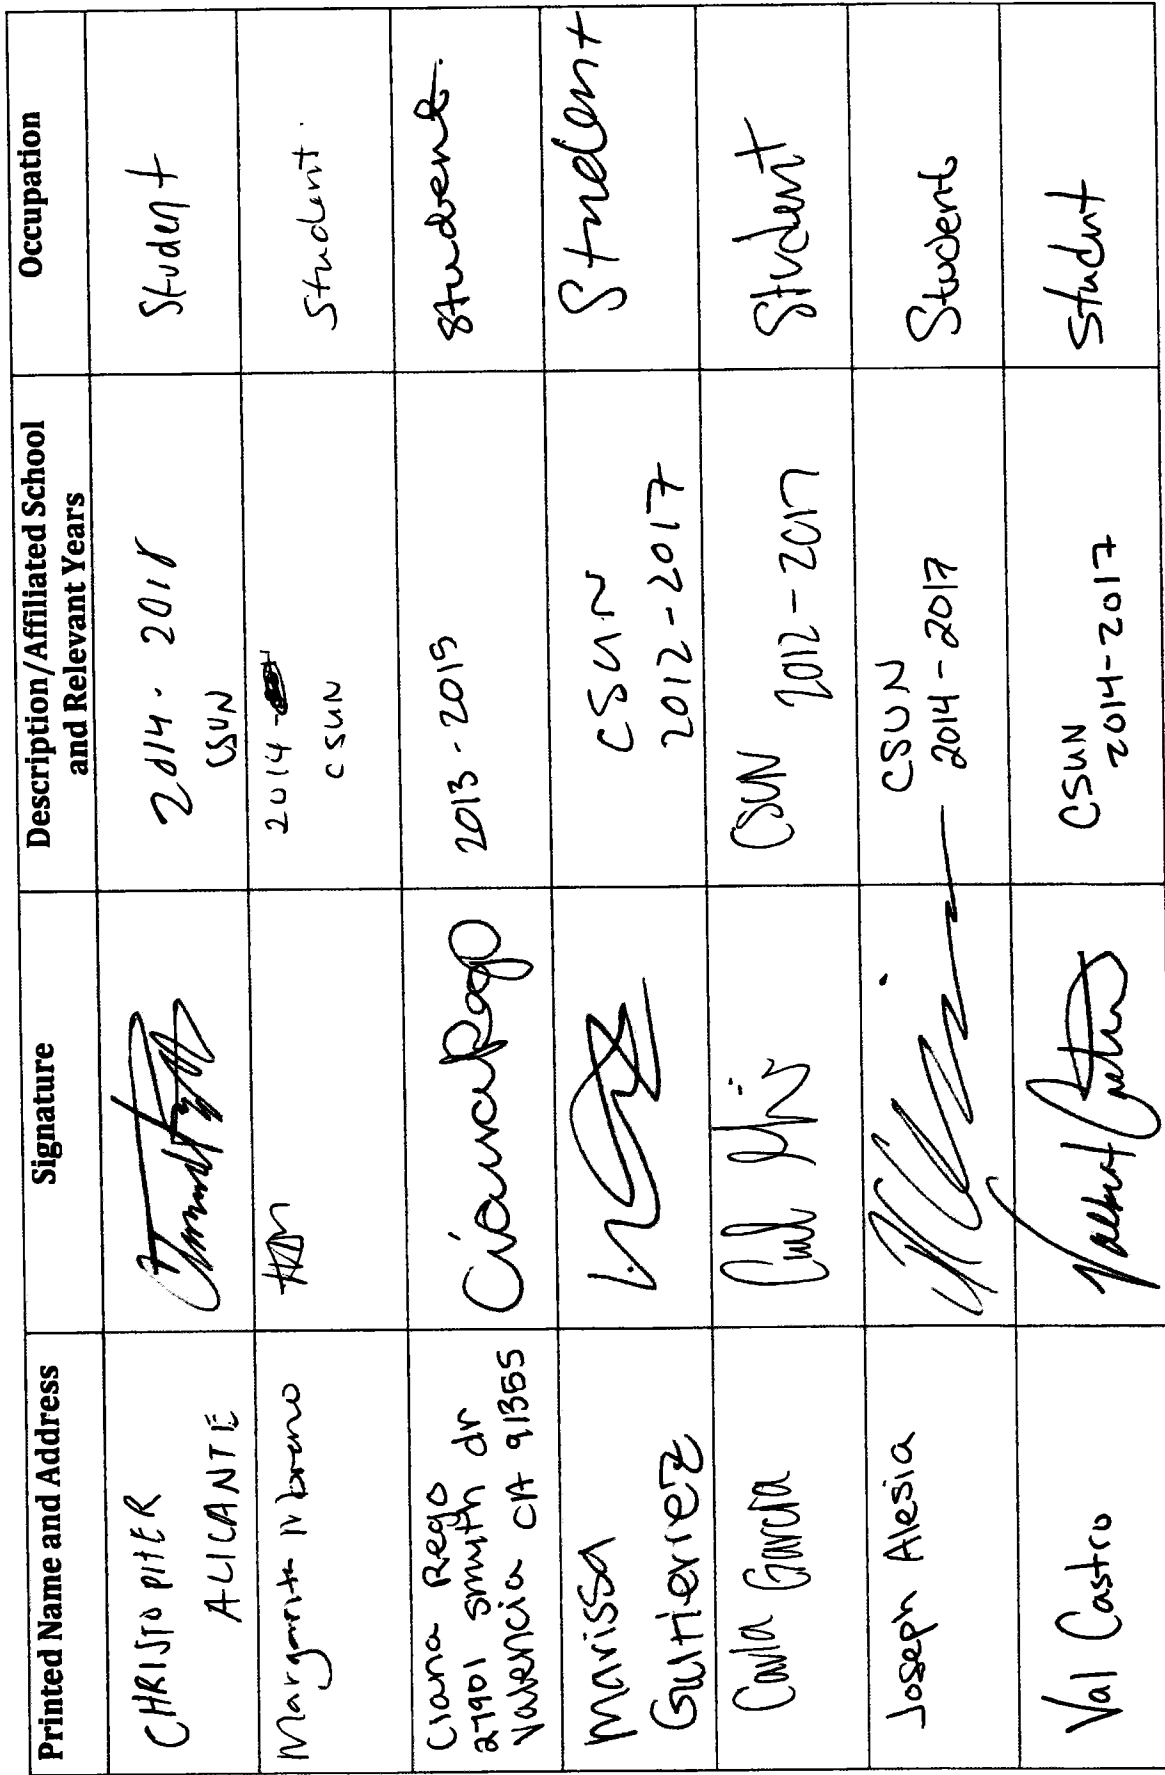 Printed Name and Address
Signature
Description/Affiliated School
and Relevant Years
Occupation
CHRISTOPHER
ALICANTE
2014 - 2018
CSUN
Student
Margarita
2014 -
CSUN
Student.
Ciana Rego
27901 smyth dr
Valencia CA 91355
Ciana Rego
2013 - 2015
Student.
Marissa
Gutierrez
CSUN
2012-2017
Student
Carla Garcia
CSUN
2012-2017
Student
Joseph Alesia
CSUN
2014-2017
Student
Val Castro
CSUN
2014-2017
Student